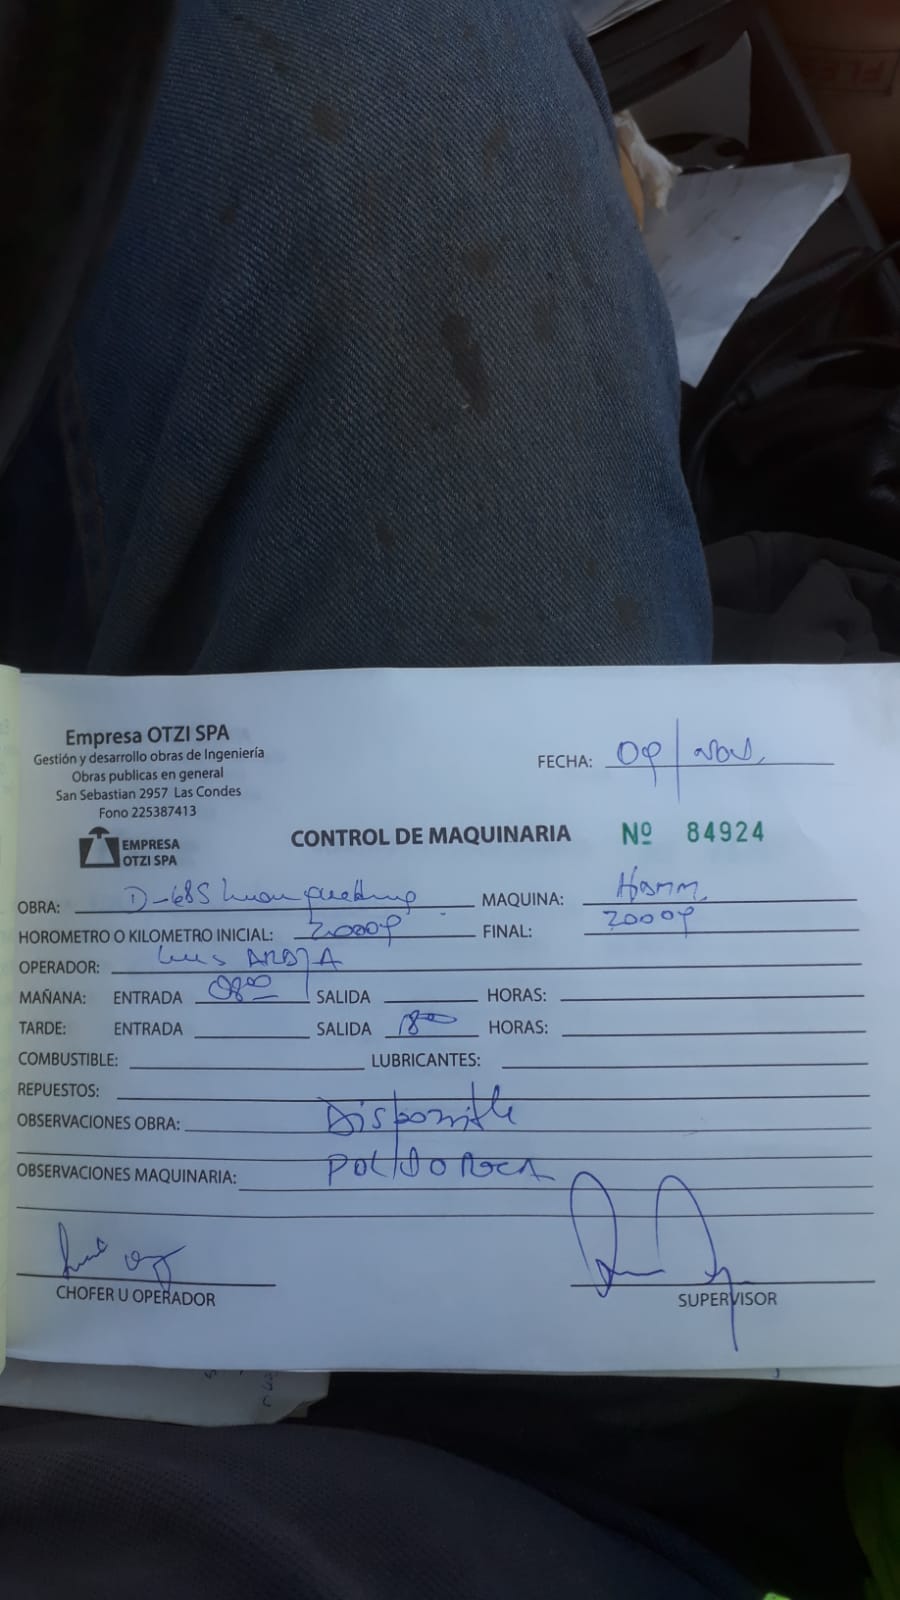 Empresa OTZI SPA
Gestión y desarrollo obras de Ingeniería
Obras publicas en general
San Sebastian 2957 Las Condes
Fono 225387413
EMPRESA
OTZI SPA
FECHA: 09/Nov.
CONTROL DE MAQUINARIA Nº 84924
OBRA: D-685 MAQUINA: Hamm
HOROMETRO O KILOMETRO INICIAL: 20009 FINAL: 20009
OPERADOR: Luis
MAÑANA: ENTRADA 08:00 SALIDA HORAS:
TARDE: ENTRADA SALIDA 18:00 HORAS:
COMBUSTIBLE: LUBRICANTES:
REPUESTOS:
OBSERVACIONES OBRA: Disponible
OBSERVACIONES MAQUINARIA:
CHOFER U OPERADOR
SUPERVISOR